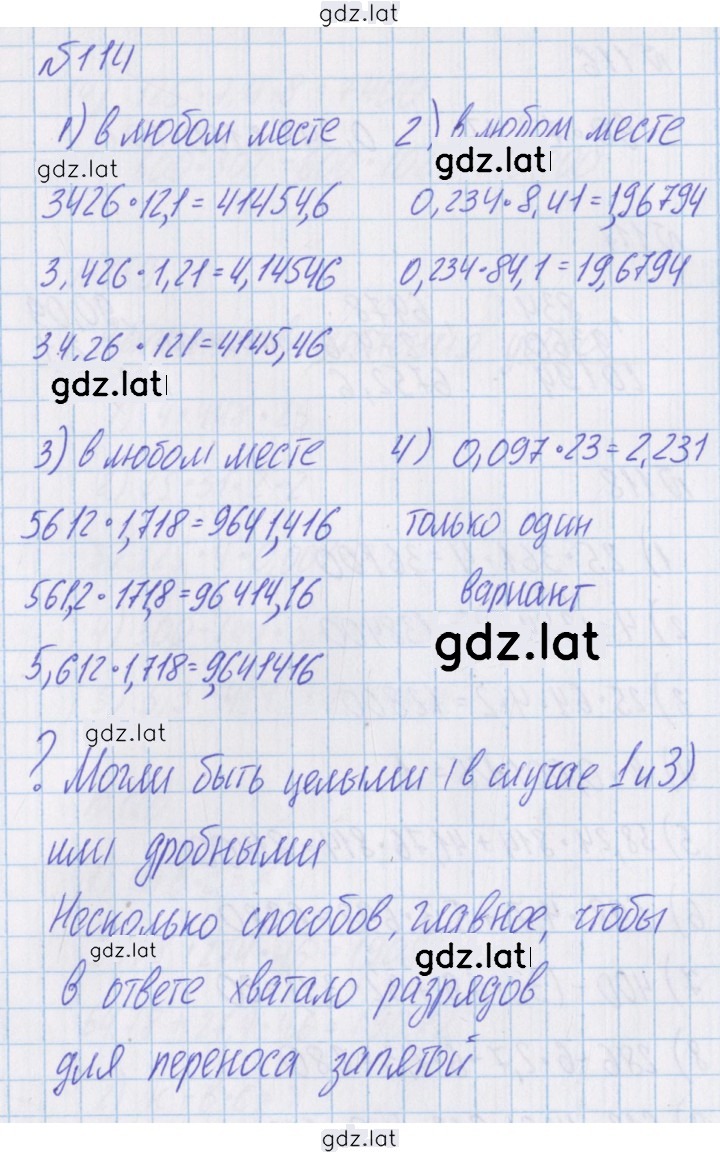 gdz.lat
№114
1) в любом месте
gdz.lat
3426·12,1=41454,6
3,426·1,21=4,14546
34,26·121=4145,46
gdz.lat
2) в любом месте
gdz.lat
0,234·8,41=1,96794
0,234·84,1=19,6794
3) в любом месте
5612·1,718=9641,416
561,2·171,8=96414,16
5,612·1,718=9,641416
4) 0,097·23=2,231
только один
вариант
gdz.lat
gdz.lat
? Могли быть целыми (в случае 1 и 3)
или дробными
Несколько способов, главное, чтобы
gdz.lat
gdz.lat
в ответе хватало разрядов
для переноса запятой
gdz.lat